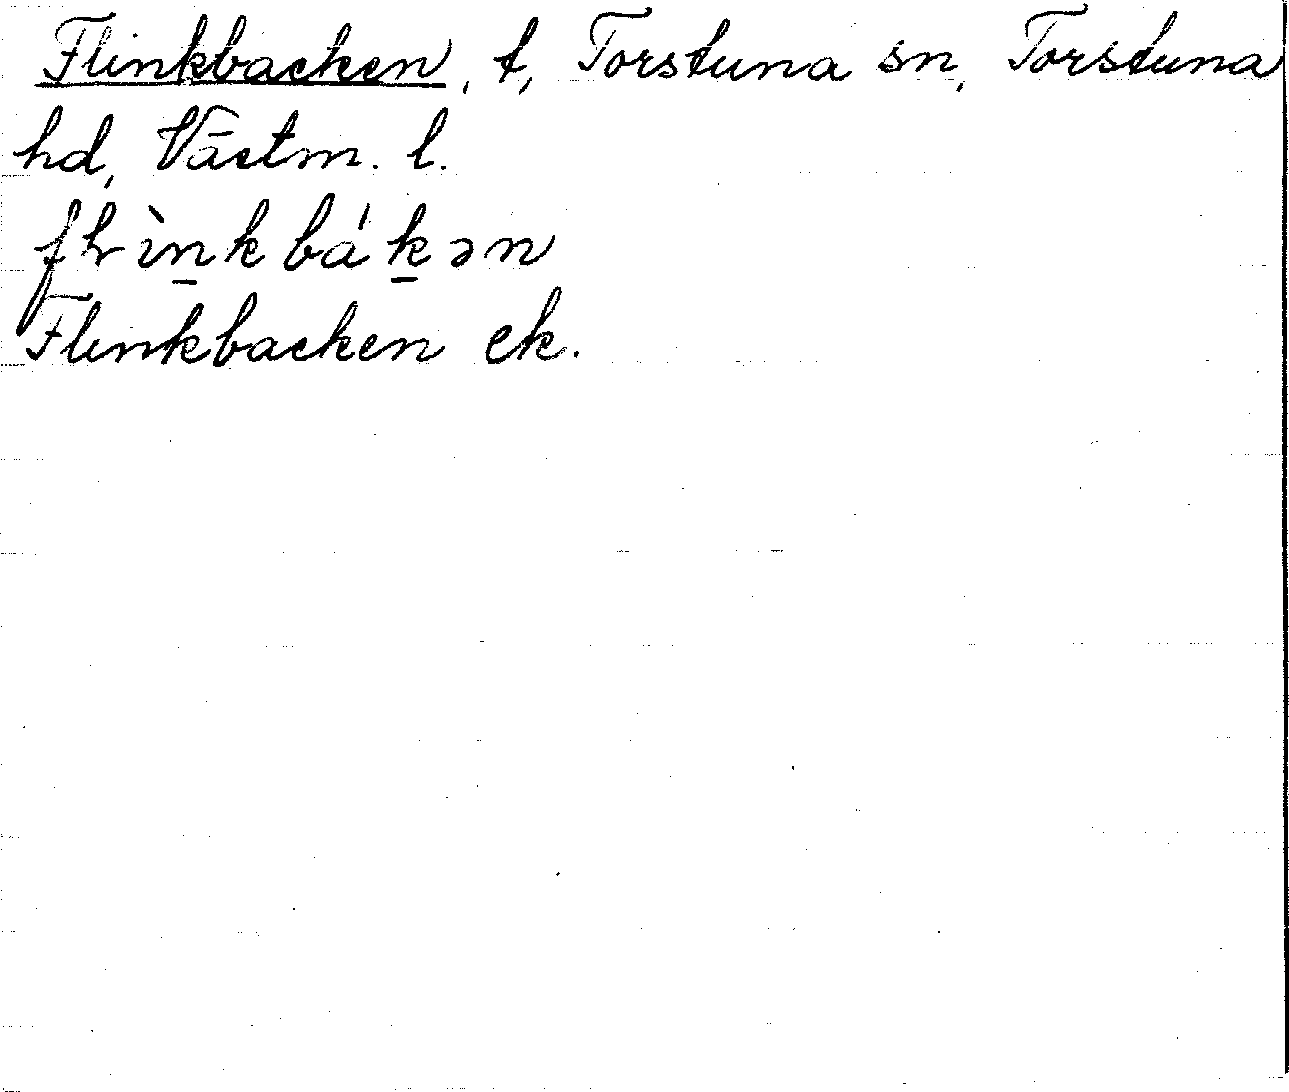 Flinkbacken, t, Torstuna sn, Torstuna
hd, Västm. l.
fƚìn̲kbák̲ən
Flinkbacken ek.